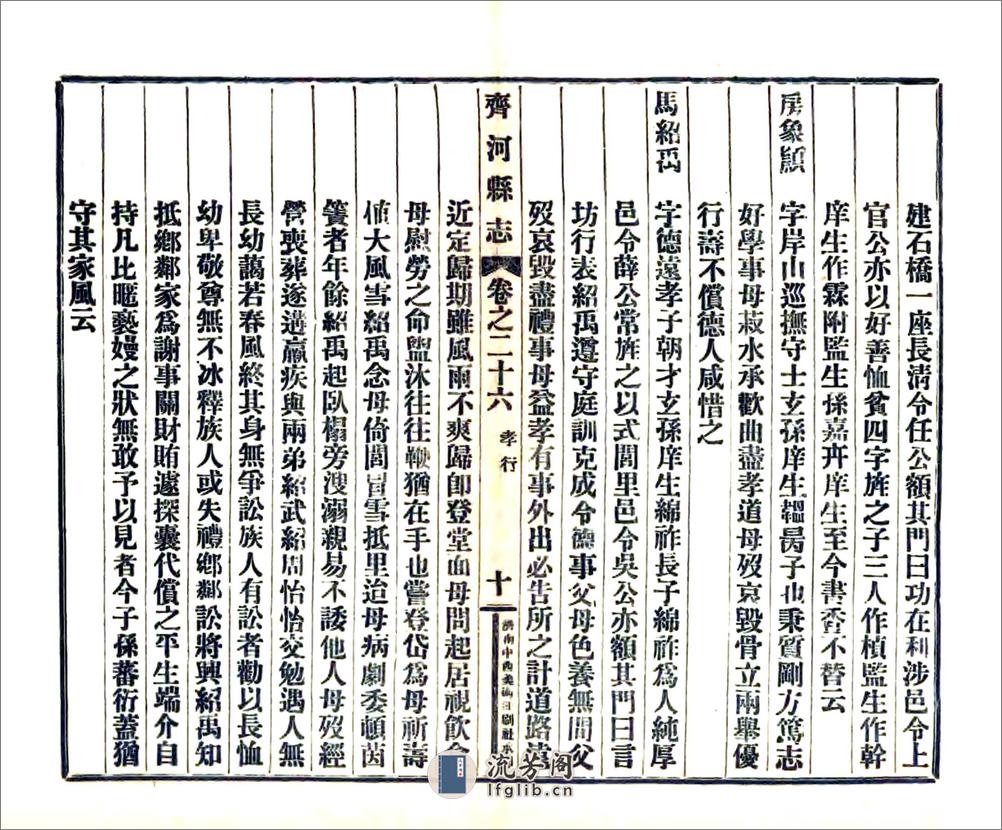 建石橋一座長淸令任公額其門曰功在利涉邑令上
官公亦以好善恤貧四字旌之子三人作楨監生作幹
庠生作霖附監生孫嘉卉庠生至今書香不替云
房象顥
字岸山巡撫守士玄孫庠生韞昺子也秉質剛方篤志
好學事母菽水承歡曲盡孝道母歿哀毀骨立兩舉優
行壽不償德人咸惜之
馬紹禹
字德遠孝子朝才玄孫庠生綿祚長子綿祚爲人純厚
邑令薛公常旌之以式閭里邑令吳公亦額其門曰言
坊行表紹禹遵守庭訓克成令德事父母色養無間父
歿哀毀盡禮事母益孝有事外出必告所之計道路遠
齊河縣志
卷之二十六
孝行
十
濟南中西美術印刷社承
近定歸期雖風雨不爽歸卽登堂面母問起居視飲食
母慰勞之命盥沐往往鞭猶在手也嘗登岱爲母祈壽
値大風雪紹禹念母倚閭冒雪抵里迨母病劇委頓茵
簀者年餘紹禹起臥榻旁溲溺親易不諉他人母歿經
營喪葬遂遘羸疾與兩弟紹武紹周怡怡交勉遇人無
長幼藹若春風終其身無爭訟族人有訟者勸以長恤
幼卑敬尊無不冰釋族人或失禮鄕鄰訟將興紹禹知
抵鄕鄰家爲謝事關財賄遽探囊代償之平生端介自
持凡比暱褻嫚之狀無敢予以見者今子孫蕃衍蓋猶
守其家風云
流芳阁
lfglib.cn